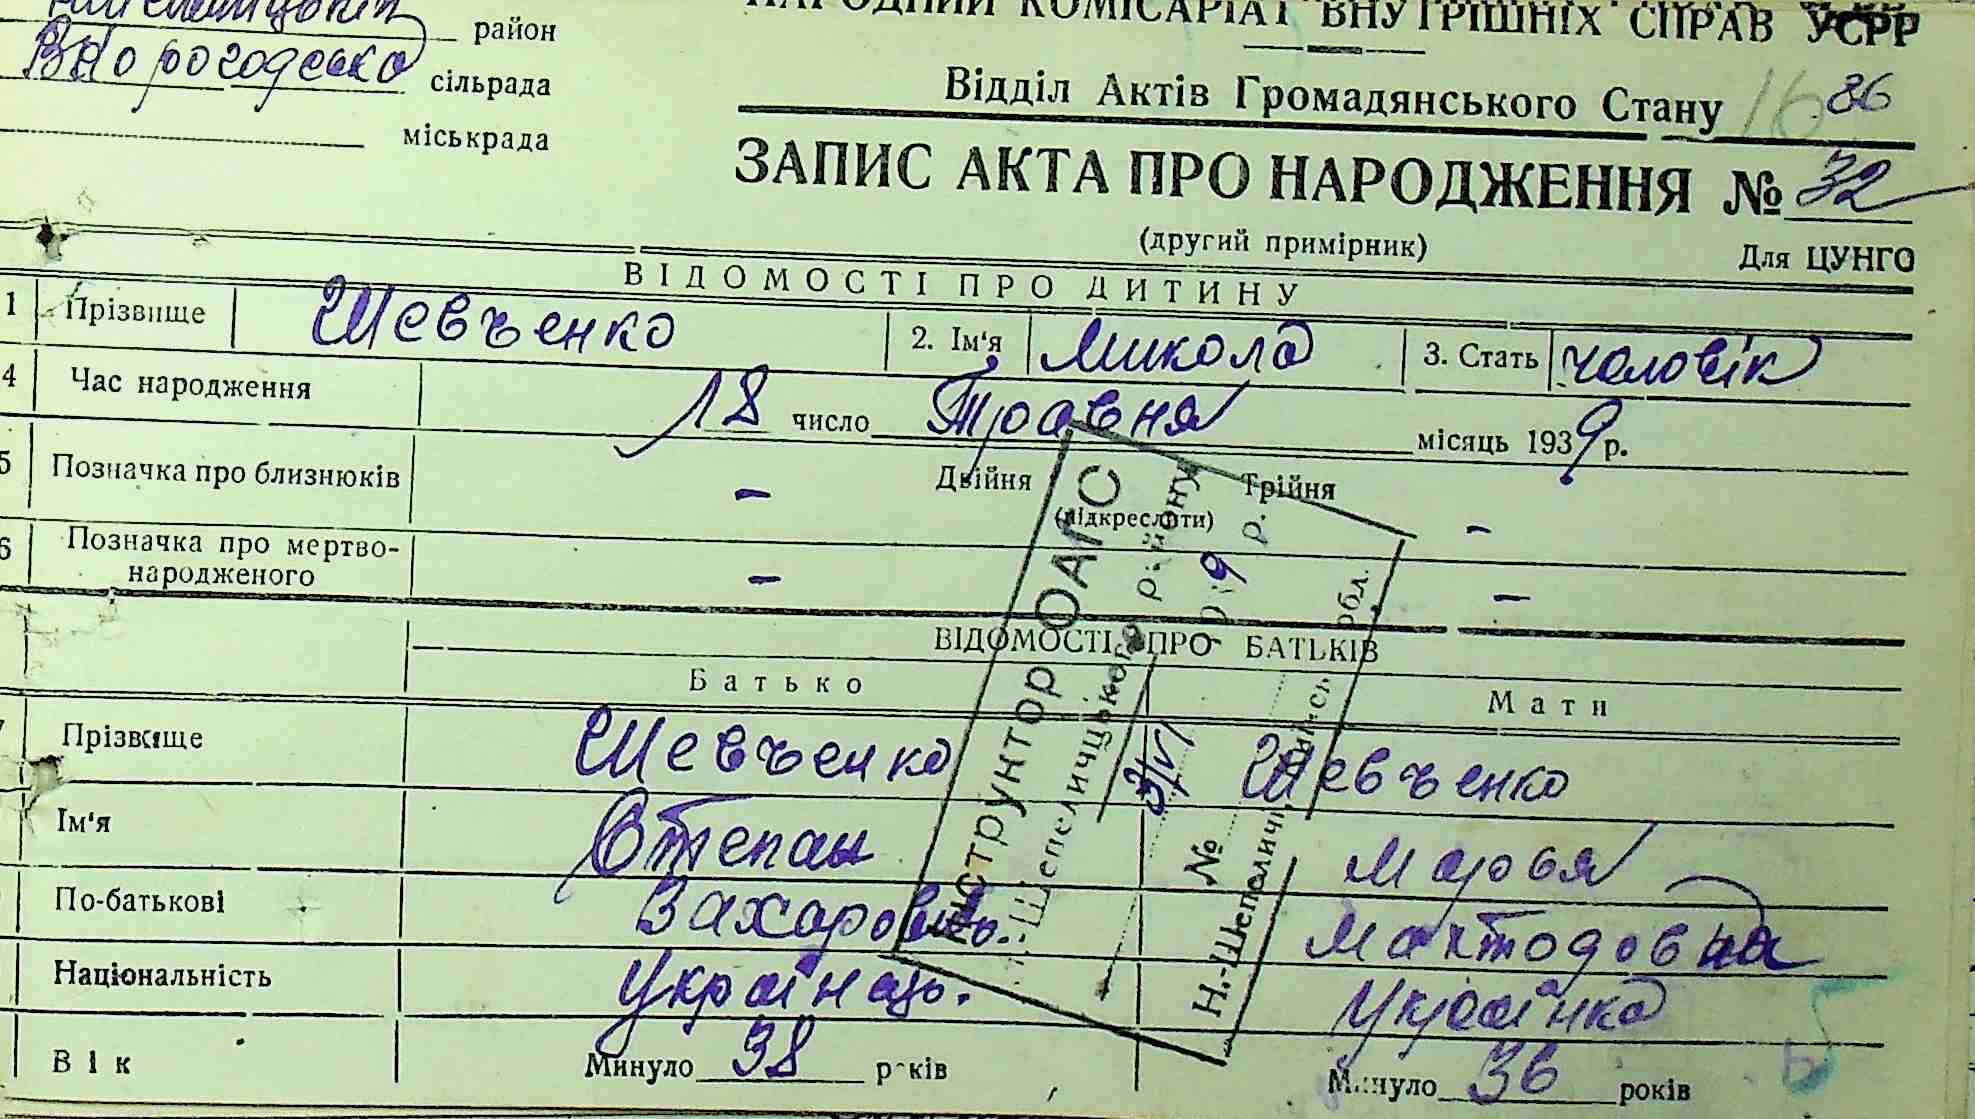 район
НАРОДНИЙ КОМІСАРІАТ ВНУТРІШНІХ СПРАВ УСРР
сільрада
Відділ Актів Громадянського Стану 16 86
міськрада
ЗАПИС АКТА ПРО НАРОДЖЕННЯ № 32
(другий примірник) Для ЦУНГО
ВІДОМОСТІ ПРО ДИТИНУ
1 Прізвище Шевченко 2. Ім'я Микола 3. Стать чоловік
4 Час народження 18 число Травня місяць 1939 р.
5 Позначка про близнюків – Двійня Трійня –
(підкреслити)
6 Позначка про мертво-
народженого – –
ВІДОМОСТІ ПРО БАТЬКІВ
Батько Мати
Прізвище Шевченко Шевченко
Ім'я Степан Марья
По-батькові Захарович
Національність Українець. Українка
Вік Минуло 38 років Минуло 36 років
Інструктор ОАГС
Н.-Шепеличцького району
3/VI 1939 р.
№
Н.-Шепеличі обл.